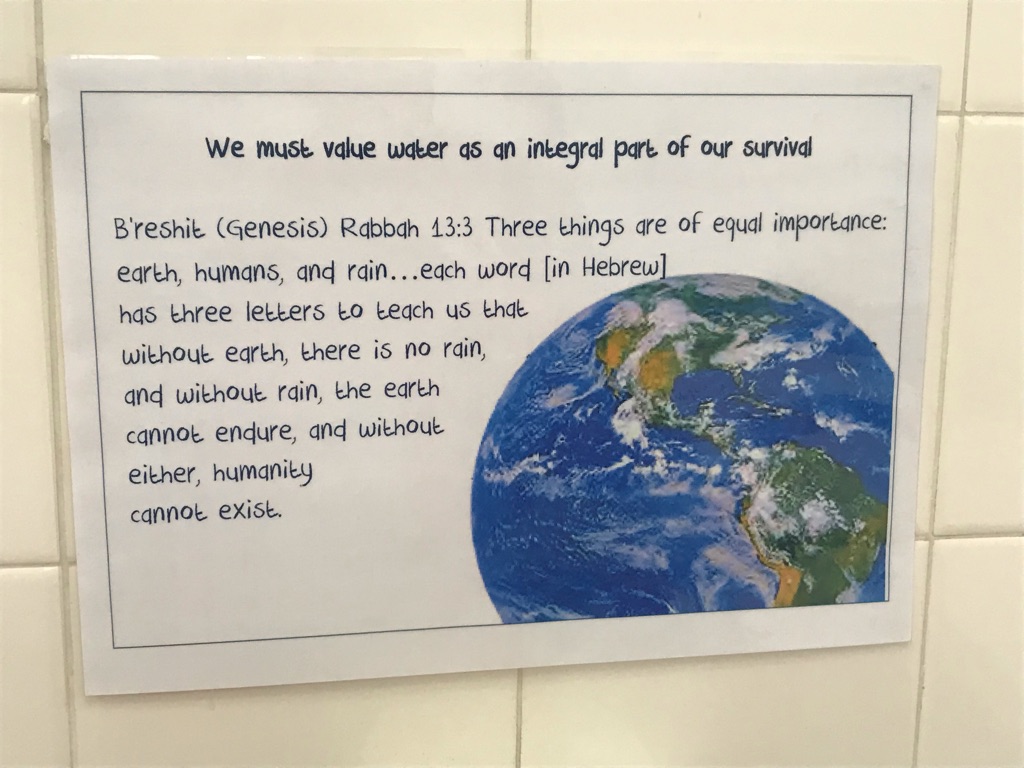 We must value water as an integral part of our survival
B'reshit (Genesis) Rabbah 13:3 Three things are of equal importance:
earth, humans, and rain...each word [in Hebrew]
has three letters to teach us that
without earth, there is no rain,
and without rain, the earth
cannot endure, and without
either, humanity
cannot exist.